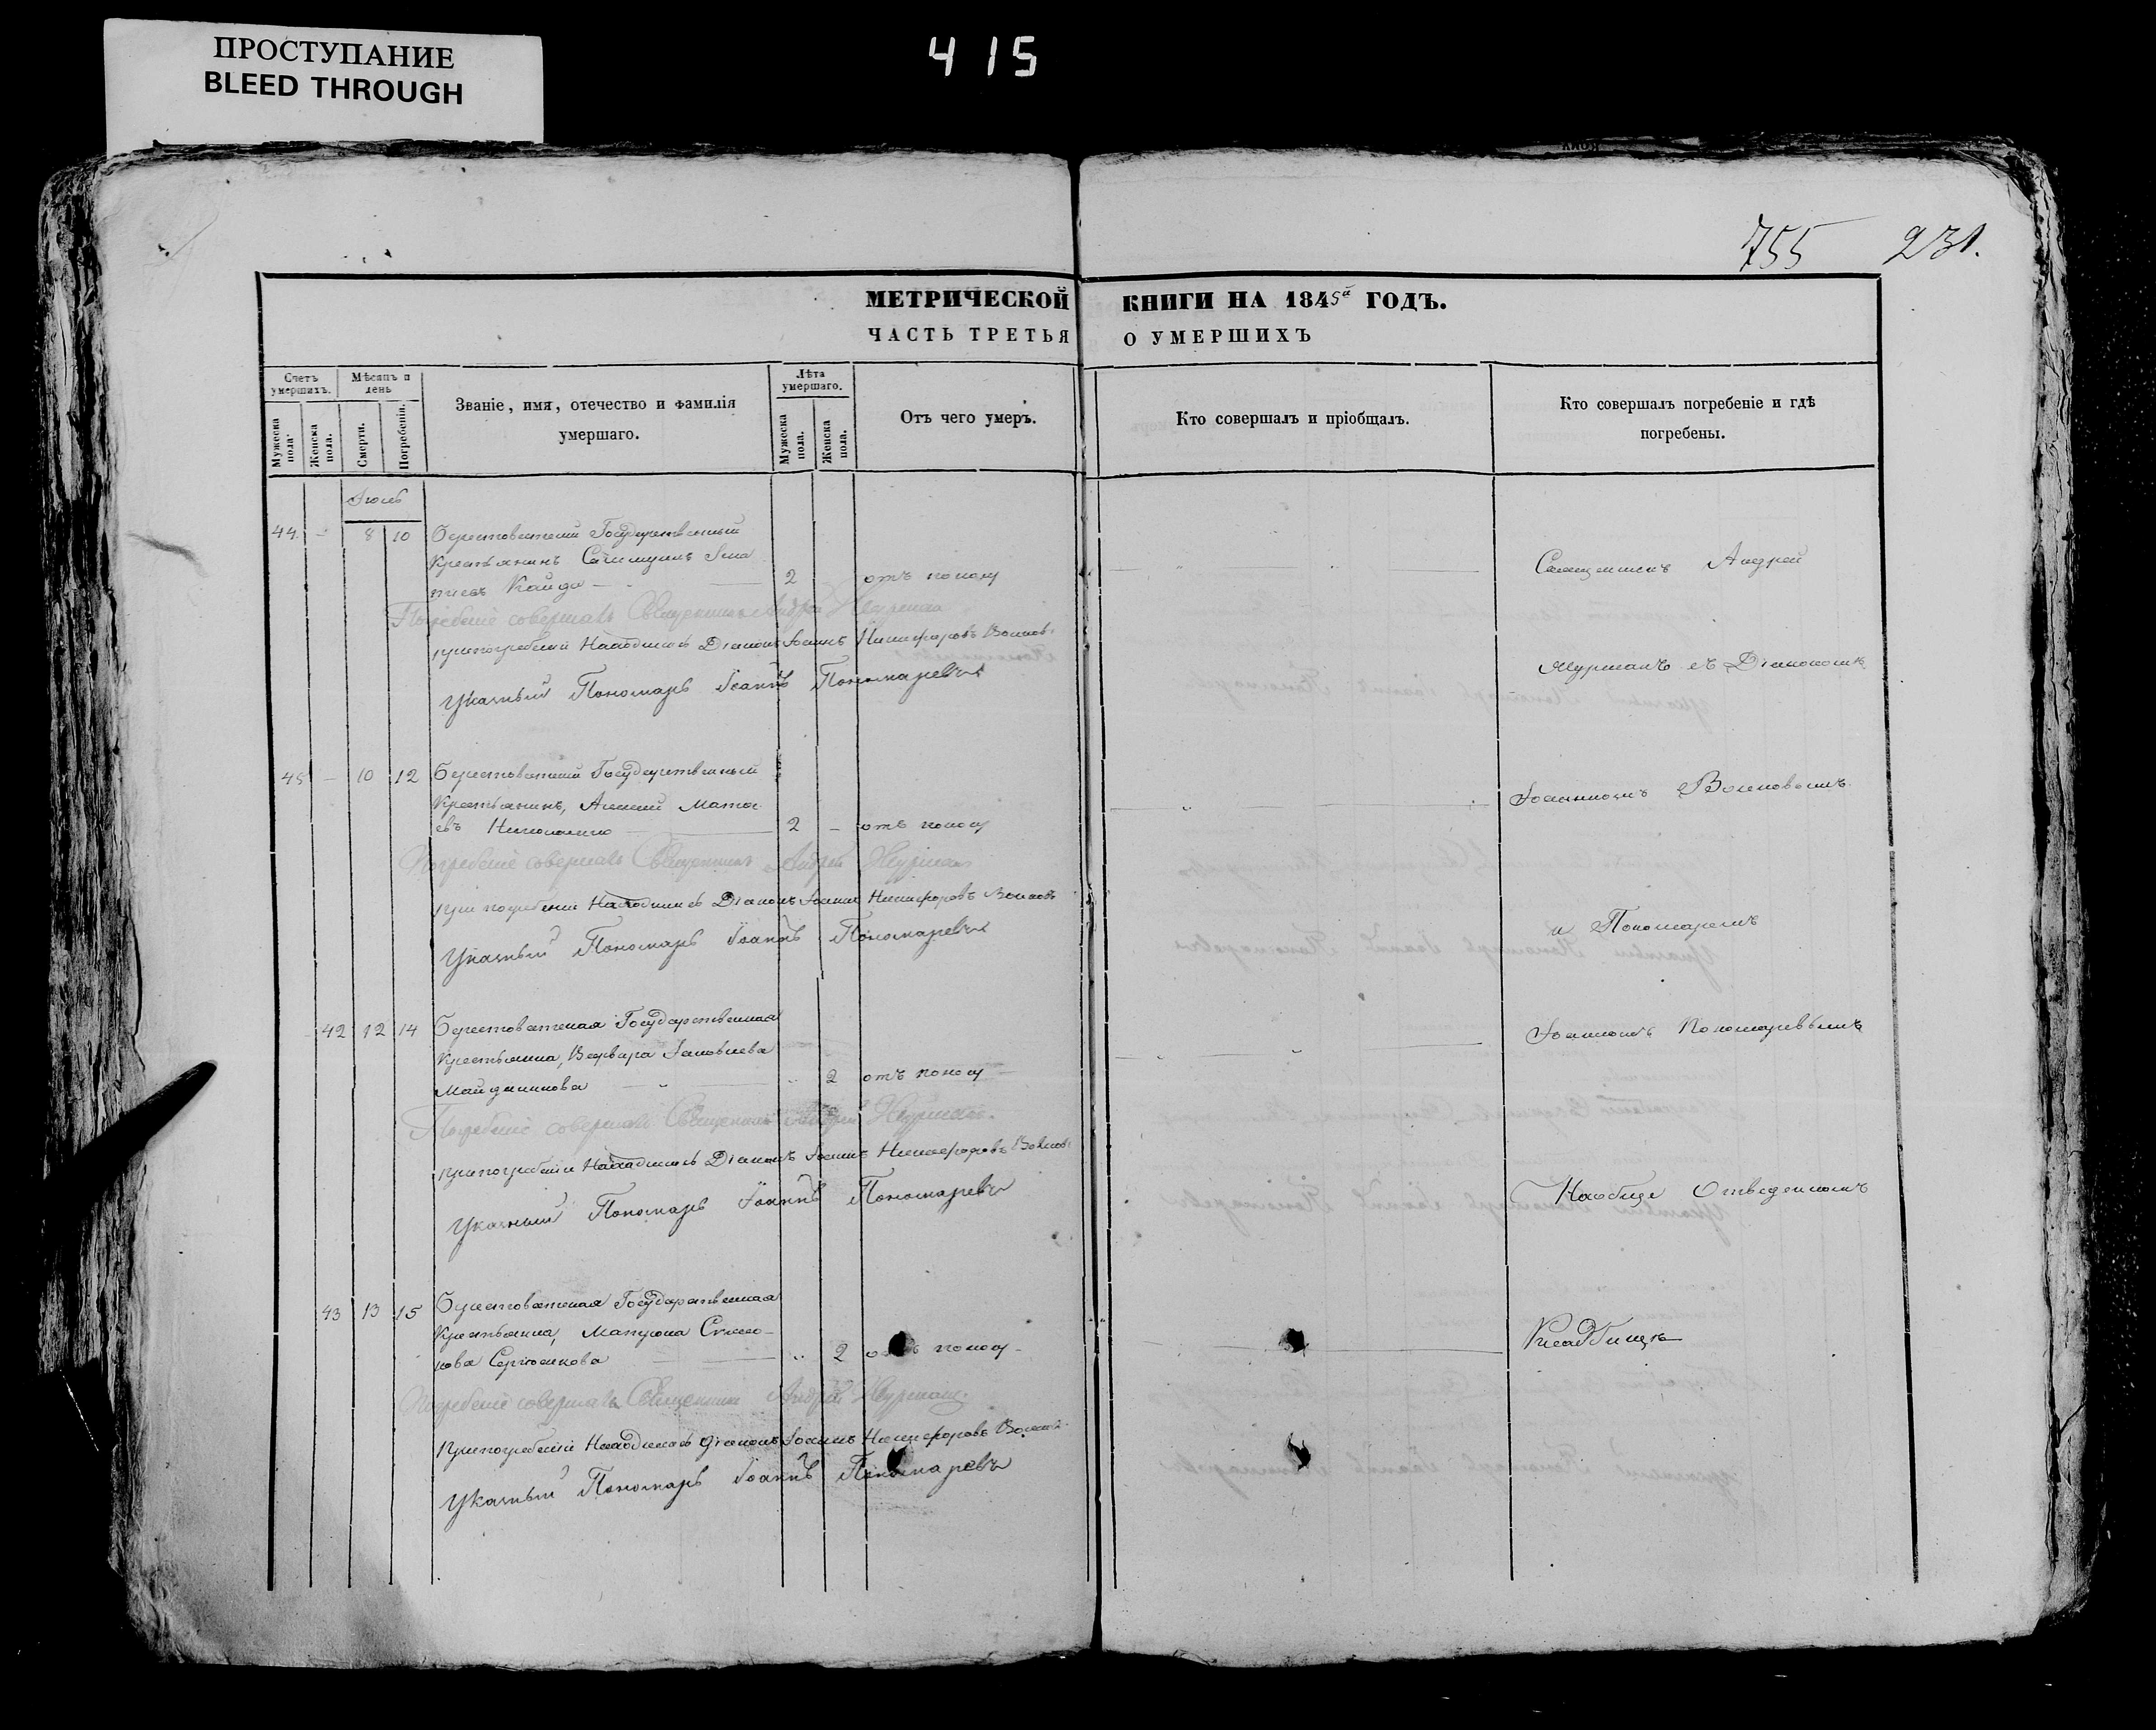 ПРОСТУПАНИЕ
BLEED THROUGH
415
755 231.
МЕТРИЧЕСКОЙ КНИГИ НА 1845й ГОДЪ.
ЧАСТЬ ТРЕТЬЯ О УМЕРШИХЪ
Счетъ умершихъ.
Мужеска пола.
Женска пола.
Мѣсяцъ и день
Смерти.
Погребенія.
Званіе, имя, отечество и фамилія
умершаго.
Лѣта умершаго.
Мужеска пола.
Женска пола.
Отъ чего умеръ.
Кто совершалъ и пріобщалъ.
Кто совершалъ погребеніе и гдѣ
погребены.
Іюль
44 - 8 10 Берестоватский Государственный
Крестьянинъ
Кайда 2 отъ поносу
Погребеніе совершалъ Священникъ Андрей Журманъ
при погребеніи Находился Діаконъ Іоаннъ Никифоровъ Воиновъ
Указный Пономарь Іоаннъ Пономаревъ
45 - 10 12 Берестоватский Государственный
Крестьянинъ,
евъ 2 - отъ поносу
Погребеніе совершалъ Священникъ Андрей Журманъ
при погребеніи Находился Діаконъ Іоаннъ Никифоровъ Воиновъ
Указный Пономарь Іоаннъ Пономаревъ
42 12 14 Берестоватская Государственная
Крестьянка, Варвара Яковлева
2 отъ поносу
Погребеніе совершалъ Священникъ Андрей Журманъ.
при погребеніи Находился Діаконъ Іоаннъ Никифоровъ Воиновъ
Указный Пономарь Іоаннъ Пономаревъ
43 13 15 Берестоватская Государственная
Крестьянка,
кова Сергіенкова 2 отъ поносу
Погребеніе совершалъ Священникъ Андрей Журманъ
При погребеніи Находился діаконъ Іоаннъ Никифоровъ Воиновъ
Указный Пономарь Іоаннъ Пономаревъ
Священникъ Андрей
Журманъ съ Діакономъ
Іоанномъ Воиновымъ
и Пономаремъ
Іоанномъ Пономаревымъ
На обще Отведенномъ
Кладбищѣ